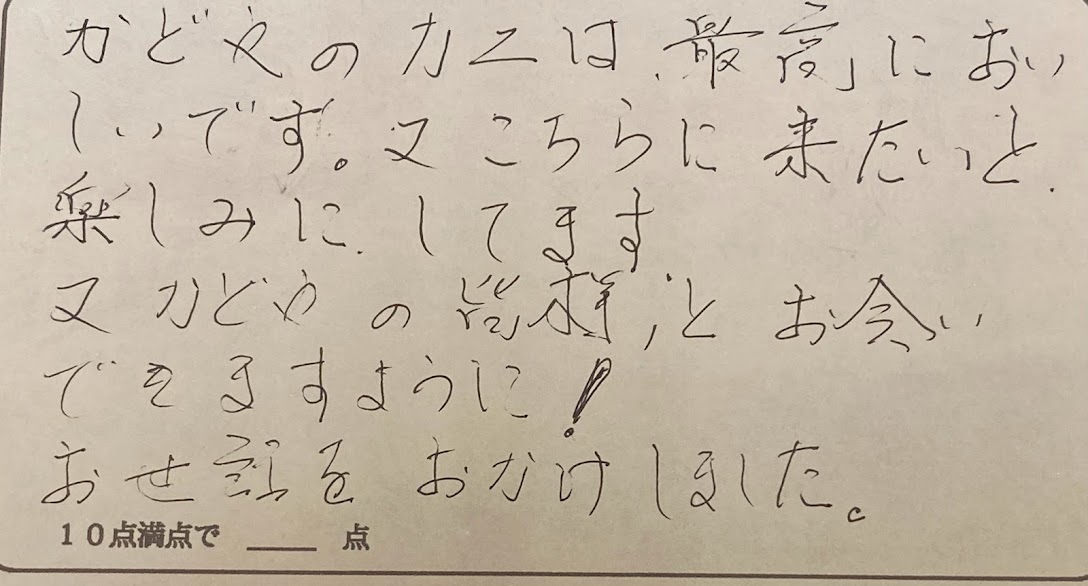 かどやのカニは「最高」におい
しいです。又こちらに来たいと、
楽しみに、してます
又かどやの皆様、とお会い
できますように!
おせ話をおかけしました。
10点満点で ___ 点